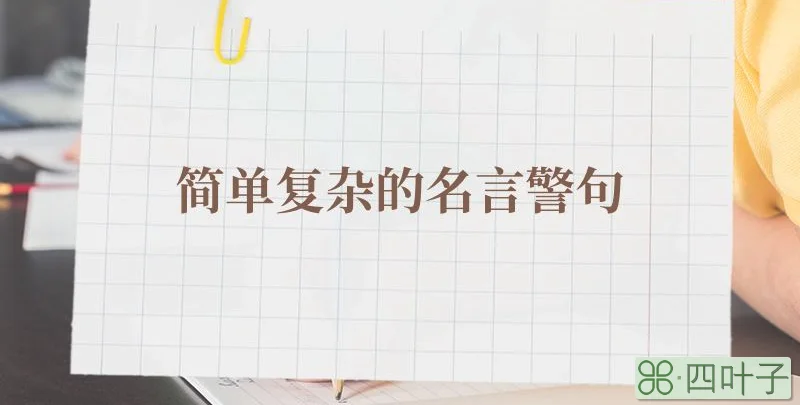 简单复杂的名言警句
四叶子